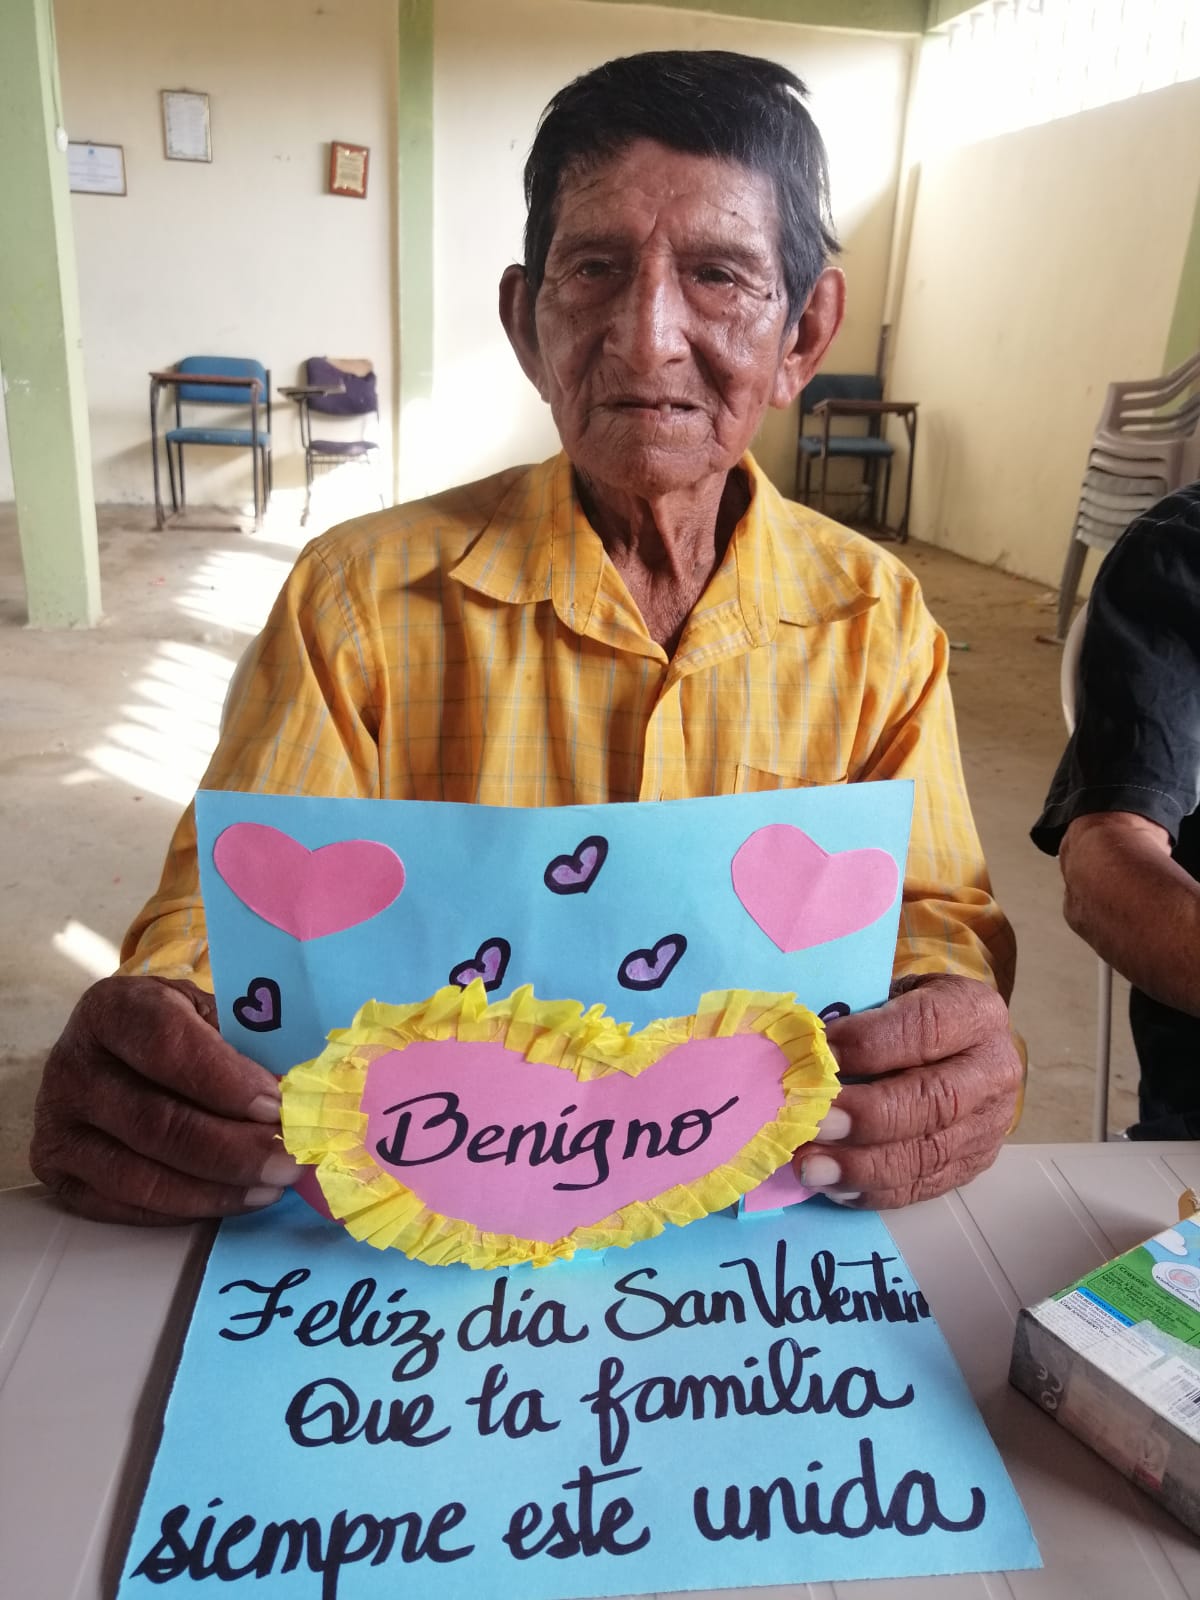 Benigno
Feliz día San Valentin
Que la familia
siempre este unida
Crayola